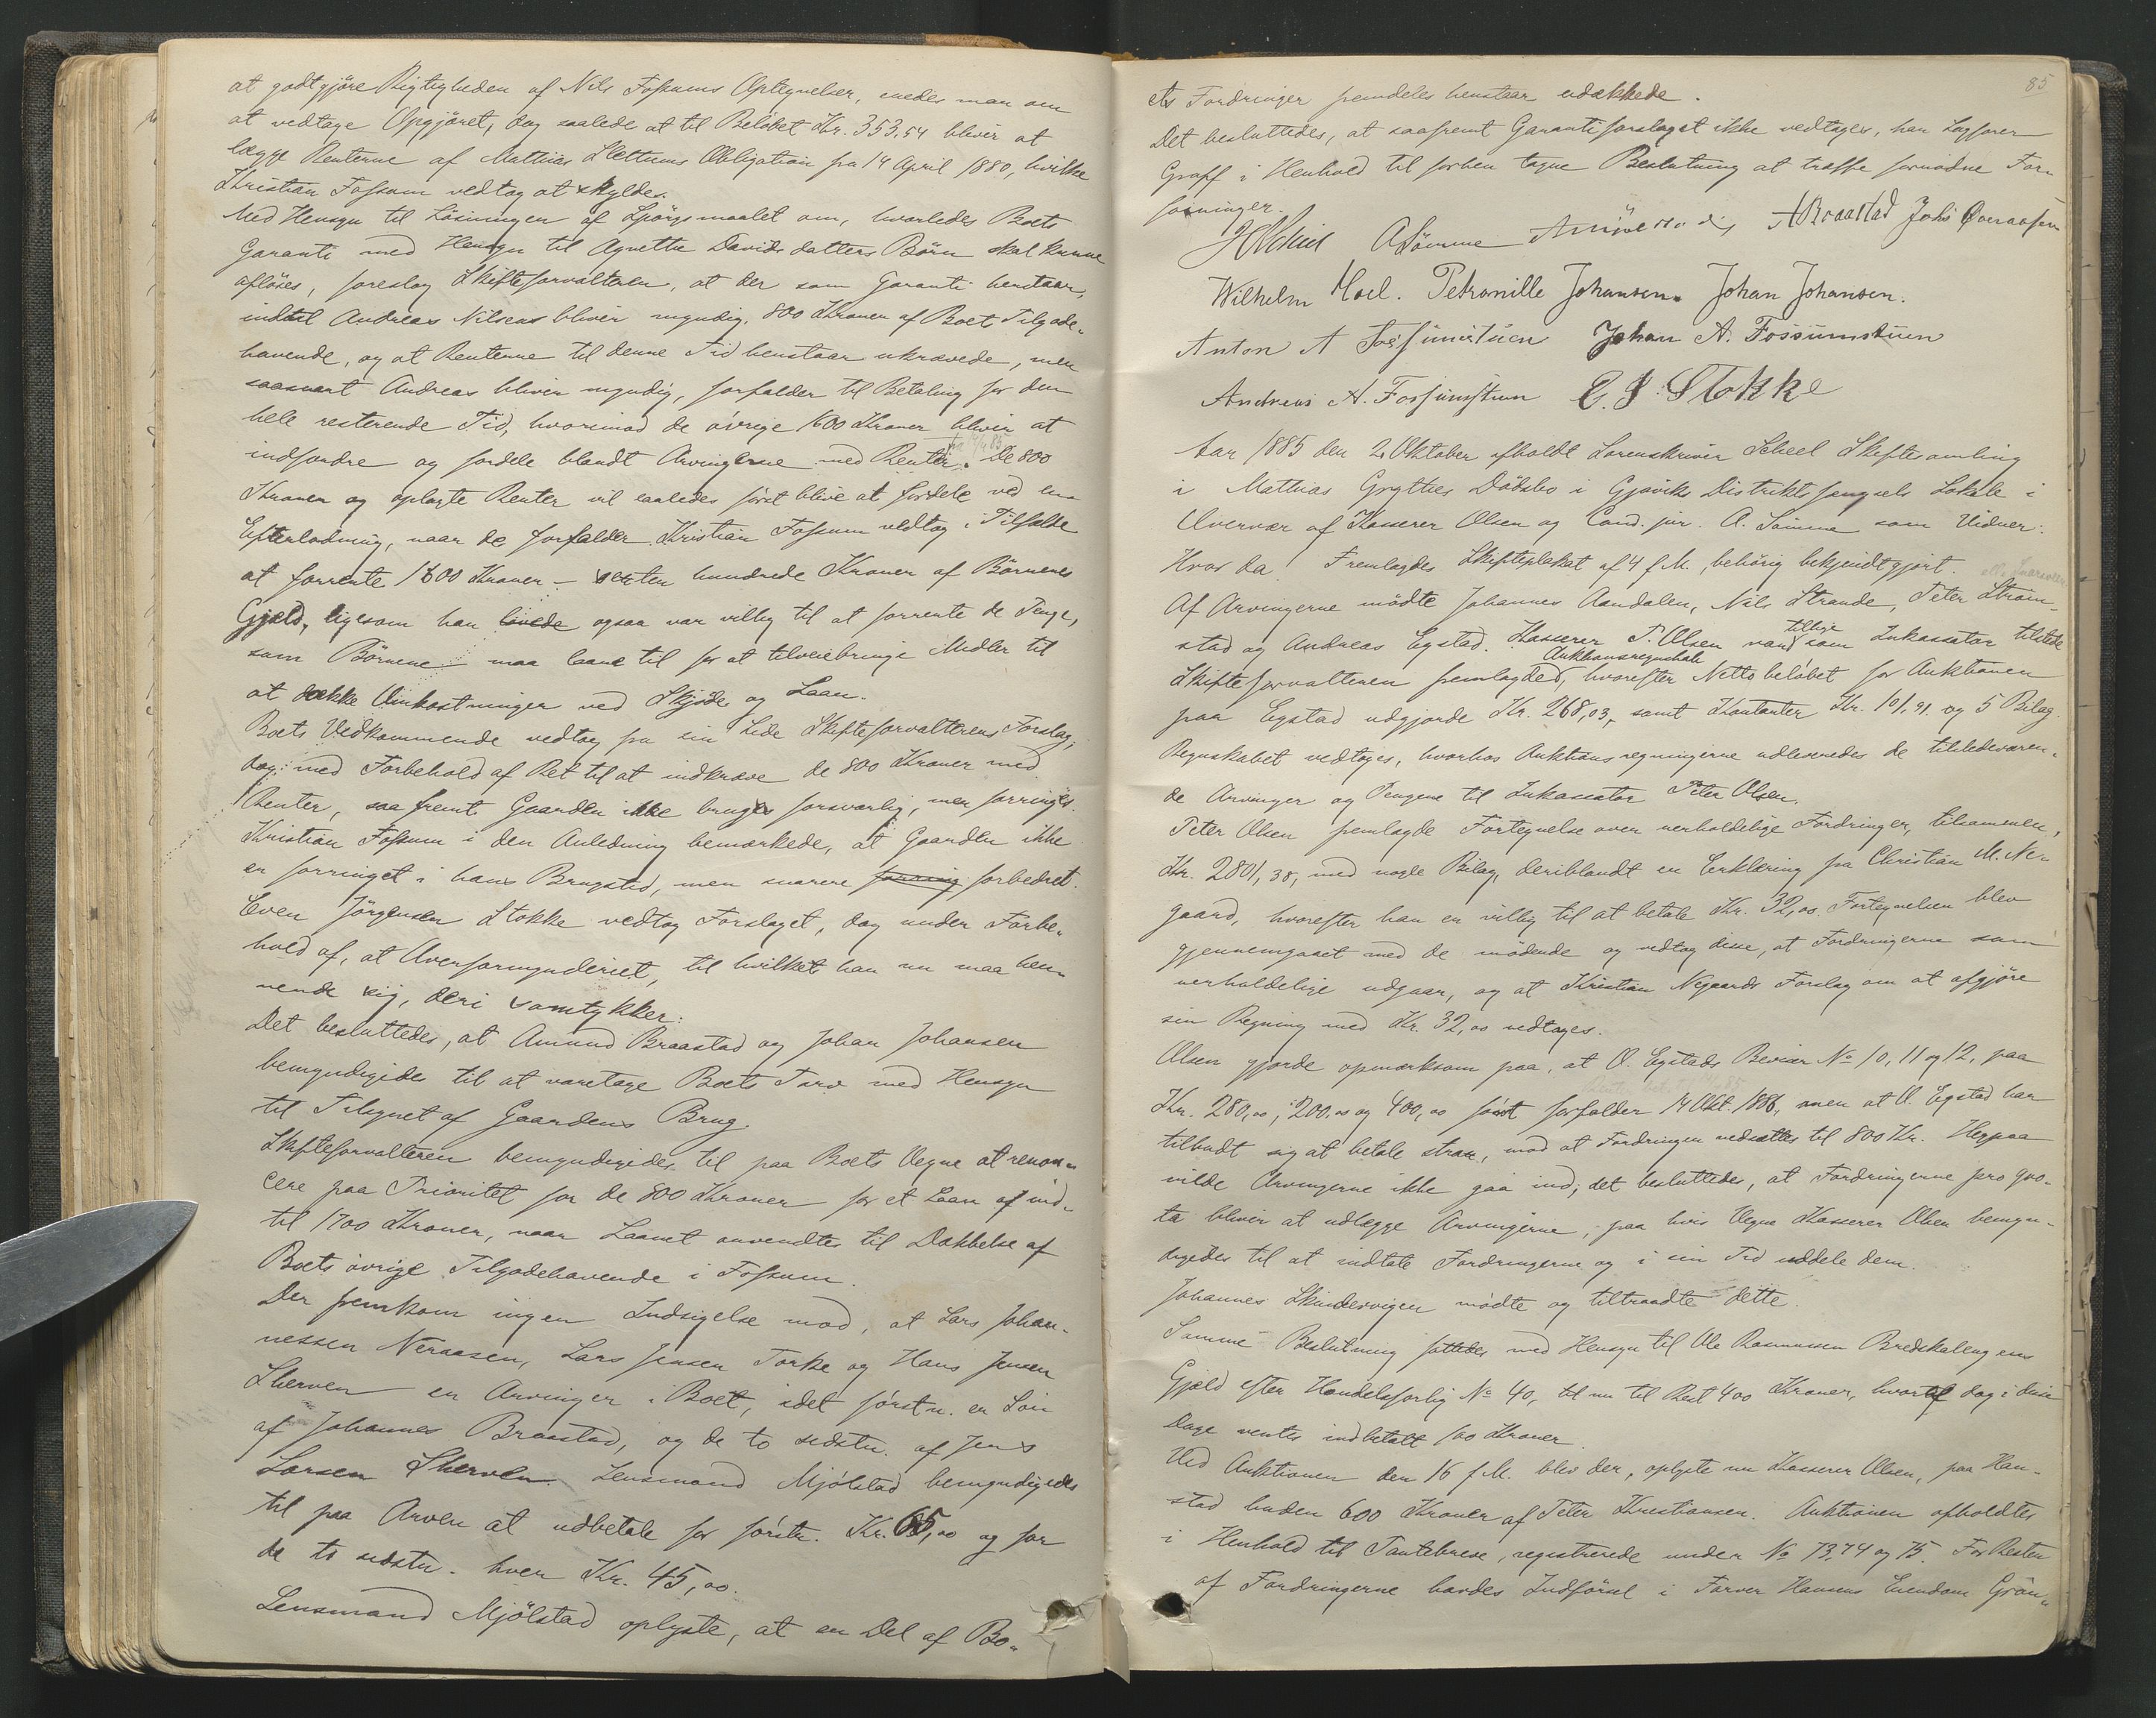 at godtgjöre Rigtigheden af Nils Fossums Optegnelser, enedes man om
at vedtage Opgjöret, dog saalede at til Belöbet Kr. 353,54 blivir at
lægge Renterne af Mathias Slettums Obligation fra 14 April 1880, hvilke
Christian Fossum vedtog at skylde.
Med Hensyn til Lösningen af Spörgsmaalet om, hvorledes Boets
Garanti med Hensyn til Agnethe Davidsdatters Börn skal kunne
aflöses, foreslog Skifteforvalteren, at der som Garanti henstaar,
indtil Andreas Nilsens bliver myndig, 800 Kroner af Boets Tilgode-
havende, og at Renterne til denne Tid henstaar ukrævede, men
saasnart Andreas bliver myndig, forfalder til Betaling for den
hele resterende Tid, hvorimod de övrige 1600 Kroner blivir at
indfordre og fordele blandt Arvingerne med Renter fra 14/4 85. De 800
Kroner og oplagte Renter vil saaledes först blive at fordele ved en
Efterlodning, naar de forfalder. Kristian Fossum vedtog i Tilfælde
at forrente 1600 Kroner - sexten hundrede Kroner af Börnenes
Gjæld, ligesom han lovede ogsaa var villig til at forrente de Penge,
som Börnene maa laane til for at tilveiebringe Midler til
at dække Omkostninger ved Skjöde og Laan.
Boets Vedkommende vedtog fra sin Side Skifteforvalterens Forslag,
dog med Forbehold af Ret til at indkræve de 800 Kroner med
Renter, saafremt Gaarden ikke bruges forsvarlig, men forringes.
Kristian Fossum i den Anledning bemærkede, at Gaarden ikke
er forringet i hans Brugstid, men snarere forring forbedret.
Even Jörgensen Stokke vedtog Forslaget, dog under Forbe-
hold af, at Overformynderiet, til hvilket han nu maa hen-
vende sig, deri samtykker.
Det besluttedes, at Amund Braastad og Johan Johansen
bemyndigedes til at varetage Boets Tarv med Hensyn
til Tilsynet af Gaardens Brug.
Skifteforvalteren bemyndigedes til paa Boets Vegne at renon-
cere paa Prioritet for de 800 Kroner for et Laan af ind-
til 1700 Kroner, naar Laanet anvendtes til Dækkelse af
Boets övrige Tilgodehavende i Fossum.
Der fremkom ingen Indsigelse mod, at Lars Johan-
nessen Neraasen, Lars Jensen Torke og Hans Jensen
Skerven er Arvinger i Boet, idet förstn. er Sön
af Johannes Braastad, og de to sidstn. af Jens
Larsen Skerven. Lensmand Mjölstad bemyndigedes
til paa Arven at udbetale for förstn. Kr. 65,00 og for
de to sidstn. hver Kr. 45,00.
Lensmand Mjölstad oplyste, at en Del af Bo-
85
ets Fordringer fremdeles henstaar udækkede.
Det besluttedes, at saafremt Garantiforslaget ikke vedtages, har Sagförer
Graff i Henhold til forhen tagne Beslutning at træffe fornödne For-
föininger.
HScheel ASömme ABraastad Johs Överaasen
Wilhelm Hoel. Petronille Johansen. Johan Johansen.
Anton A Fossumstuen Johan A. Fossumstuen
Andreas A. Fossumstuen E. J. Stokke
Aar 1885 den 2. Oktober afholdt Sorenskriver Scheel Skiftesamling
i Mathias Grythes Dödsbo i Gjöviks Distriktsfængsels Lokale i
Overvær af Kasserer Olsen og Cand. jur. A. Sömme som Vidner.
Hvor da Fremlagdes Skifteplakat af 4 f.M., behörig bekjendtgjort.
Af Arvingerne mödte Johannes Aandalen, Nils Strande, Peter Ström-
stad og Andreas Egstad. Kasserer P. Olsen var tillige som Inkassator tilstede
Skifteforvalteren fremlagdes Auktionsregnskab, hvorefter Nettobelöbet for Auktionen
paa Egstad udgjorde Kr. 268,03, samt Kontanter Kr. 101,91 og 5 Bilag.
Regnskabet vedtoges, hvorhos Auktionsregningerne udleveredes de tilstedeværen-
de Arvinger og Pengene til Inkassator Peter Olsen.
Peter Olsen fremlagde Fortegnelse over uerholdelige Fordringer, tilsammen
Kr. 2801,38, med nogle Bilag, deriblandt en Erklæring fra Christian M. Ne-
gaard, hvorefter han er villig til at betale Kr. 32,00. Fortegnelsen blev
gjennemgaaet med de mödende og vedtog disse, at Fordringerne som
uerholdelige udgaar, og at Kristian Negaards Forslag om at afgjöre
sin Regning med Kr. 32,00 vedtages.
Olsen gjorde opmærksom paa, at O. Egstads Beviser No 10, 11 og 12, paa
Kr. 280,00, 200.00 og 400,00 först forfalder 14 Okt. 1886, men at O. Egstad har
tilbudt sig at betale strax, mod at Fordringen nedsættes til 800 Kr. Herpaa
vilde Arvingerne ikke gaa ind; det besluttedes, at Fordringerne pro quo-
ta bliver at udlægge Arvingerne, paa hvis Vegne Kasserer Olsen bemyn-
digedes til at indtale Fordringerne og i sin Tid uddele dem.
Johannes Skindervigen mödte og tiltraadte dette.
Samme Beslutning fattedes med Hensyn til Ole Rasmussen Bredskallengens
Gjæld efter Handelsforlig No 40, til nu til Rest 400 Kroner, hvoraf dog i disse
Dage ventes indbetalt 100 Kroner.
Ved Auktionen den 16 f.M. blev der, oplyste nu Kasserer Olsen, paa Han-
stad buden 600 Kroner af Peter Kristiansen. Auktionen afholdtes
i Henhold til Pantebreve, registrerede under No 73,74 og 75. For Resten
af Fordringerne havdes Indförsel i Farver Hansens Eiendom Grön-